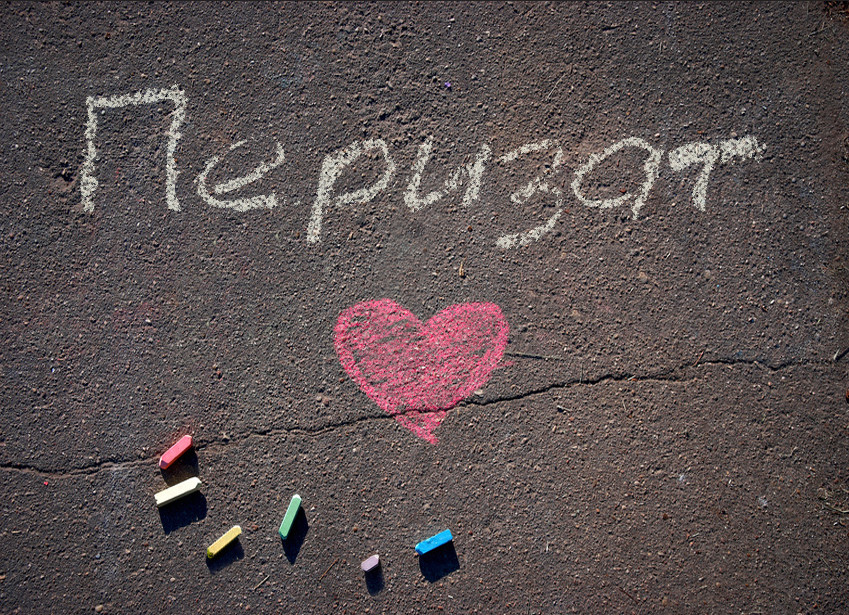 Перизат